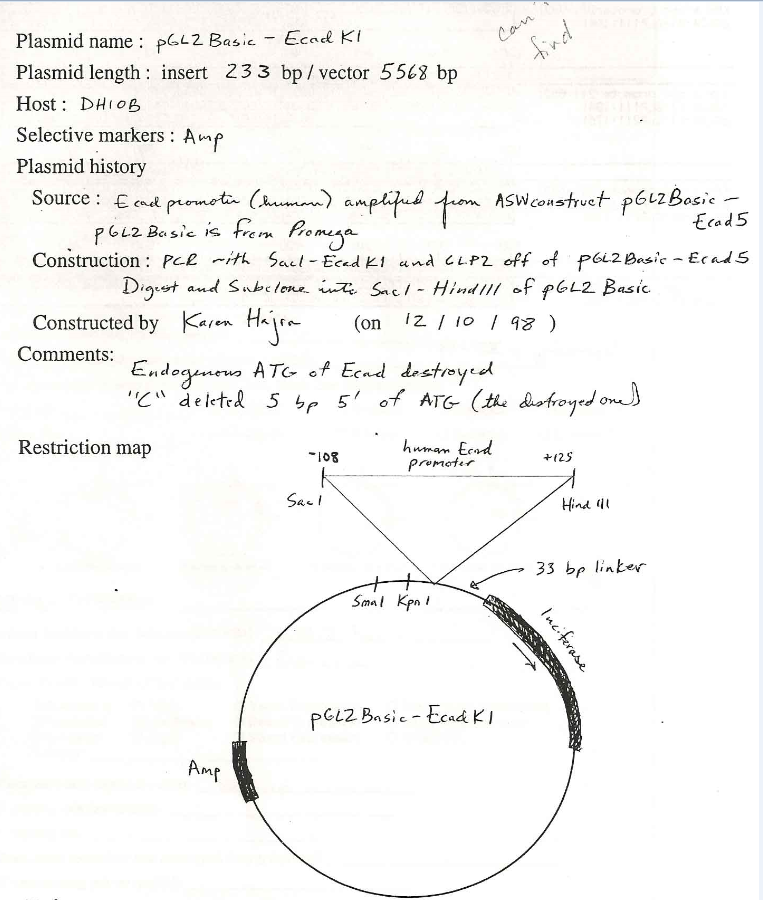 can't
find
Plasmid name : pGL2 Basic - Ecad K1
Plasmid length : insert 233 bp / vector 5568 bp
Host : DH10B
Selective markers : Amp
Plasmid history
Source : Ecad promoter (human) amplified from ASW construct pGL2 Basic -
Ecad 5
pGL2 Basic is from Promega
Construction : PCR with Sac1-EcadK1 and GLP2 off of pGL2 Basic - Ecad 5
Digest and Subclone into Sac1 - Hind III of pGL2 Basic
Constructed by Karen Hajra (on 12 / 10 / 98 )
Comments:
Endogenous ATG of Ecad destroyed
"C" deleted 5 bp 5' of ATG (the destroyed one)
Restriction map
-108 human Ecad +125
promoter
Sac I Hind III
33 bp linker
Sma I Kpn I
luciferase
pGL2 Basic - Ecad K1
Amp